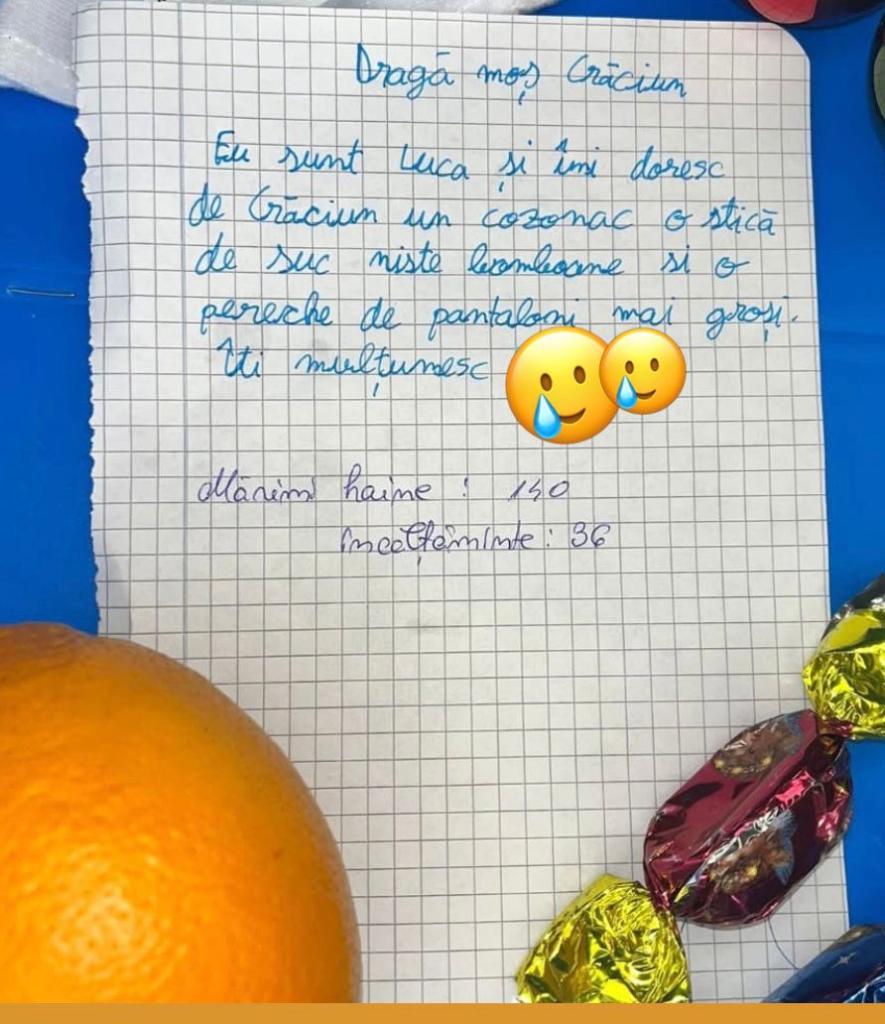 Dragă moș Crăciun
Eu sunt Luca și îmi doresc
de Crăciun un cozonac o stică
de suc niste bomboane si o
pereche de pantaloni mai groși.
Îti mulțumesc
Mărimi haine : 140
încălțăminte : 36